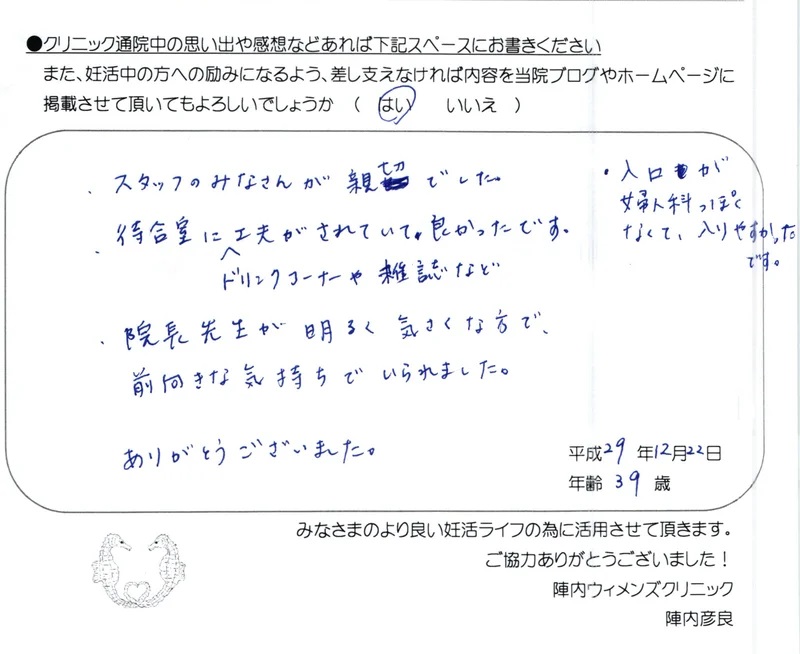 ●クリニック通院中の思い出や感想などあれば下記スペースにお書きください
また、妊活中の方への励みになるよう、差し支えなければ内容を当院ブログやホームページに
掲載させて頂いてもよろしいでしょうか （ はい いいえ ）
、スタッフのみなさんが親切でした。
、待合室に工夫がされていて。良かったです。
ドリンクコーナーや雑誌など
、院長先生が明るく気さくな方で、
前向きな気持ちでいられました。
ありがとうございました。
・入口が
婦人科っぽく
なくて、入りやすかった
です。
平成29年12月22日
年齢 39 歳
みなさまのより良い妊活ライフの為に活用させて頂きます。
ご協力ありがとうございました！
陣内ウィメンズクリニック
陣内彦良